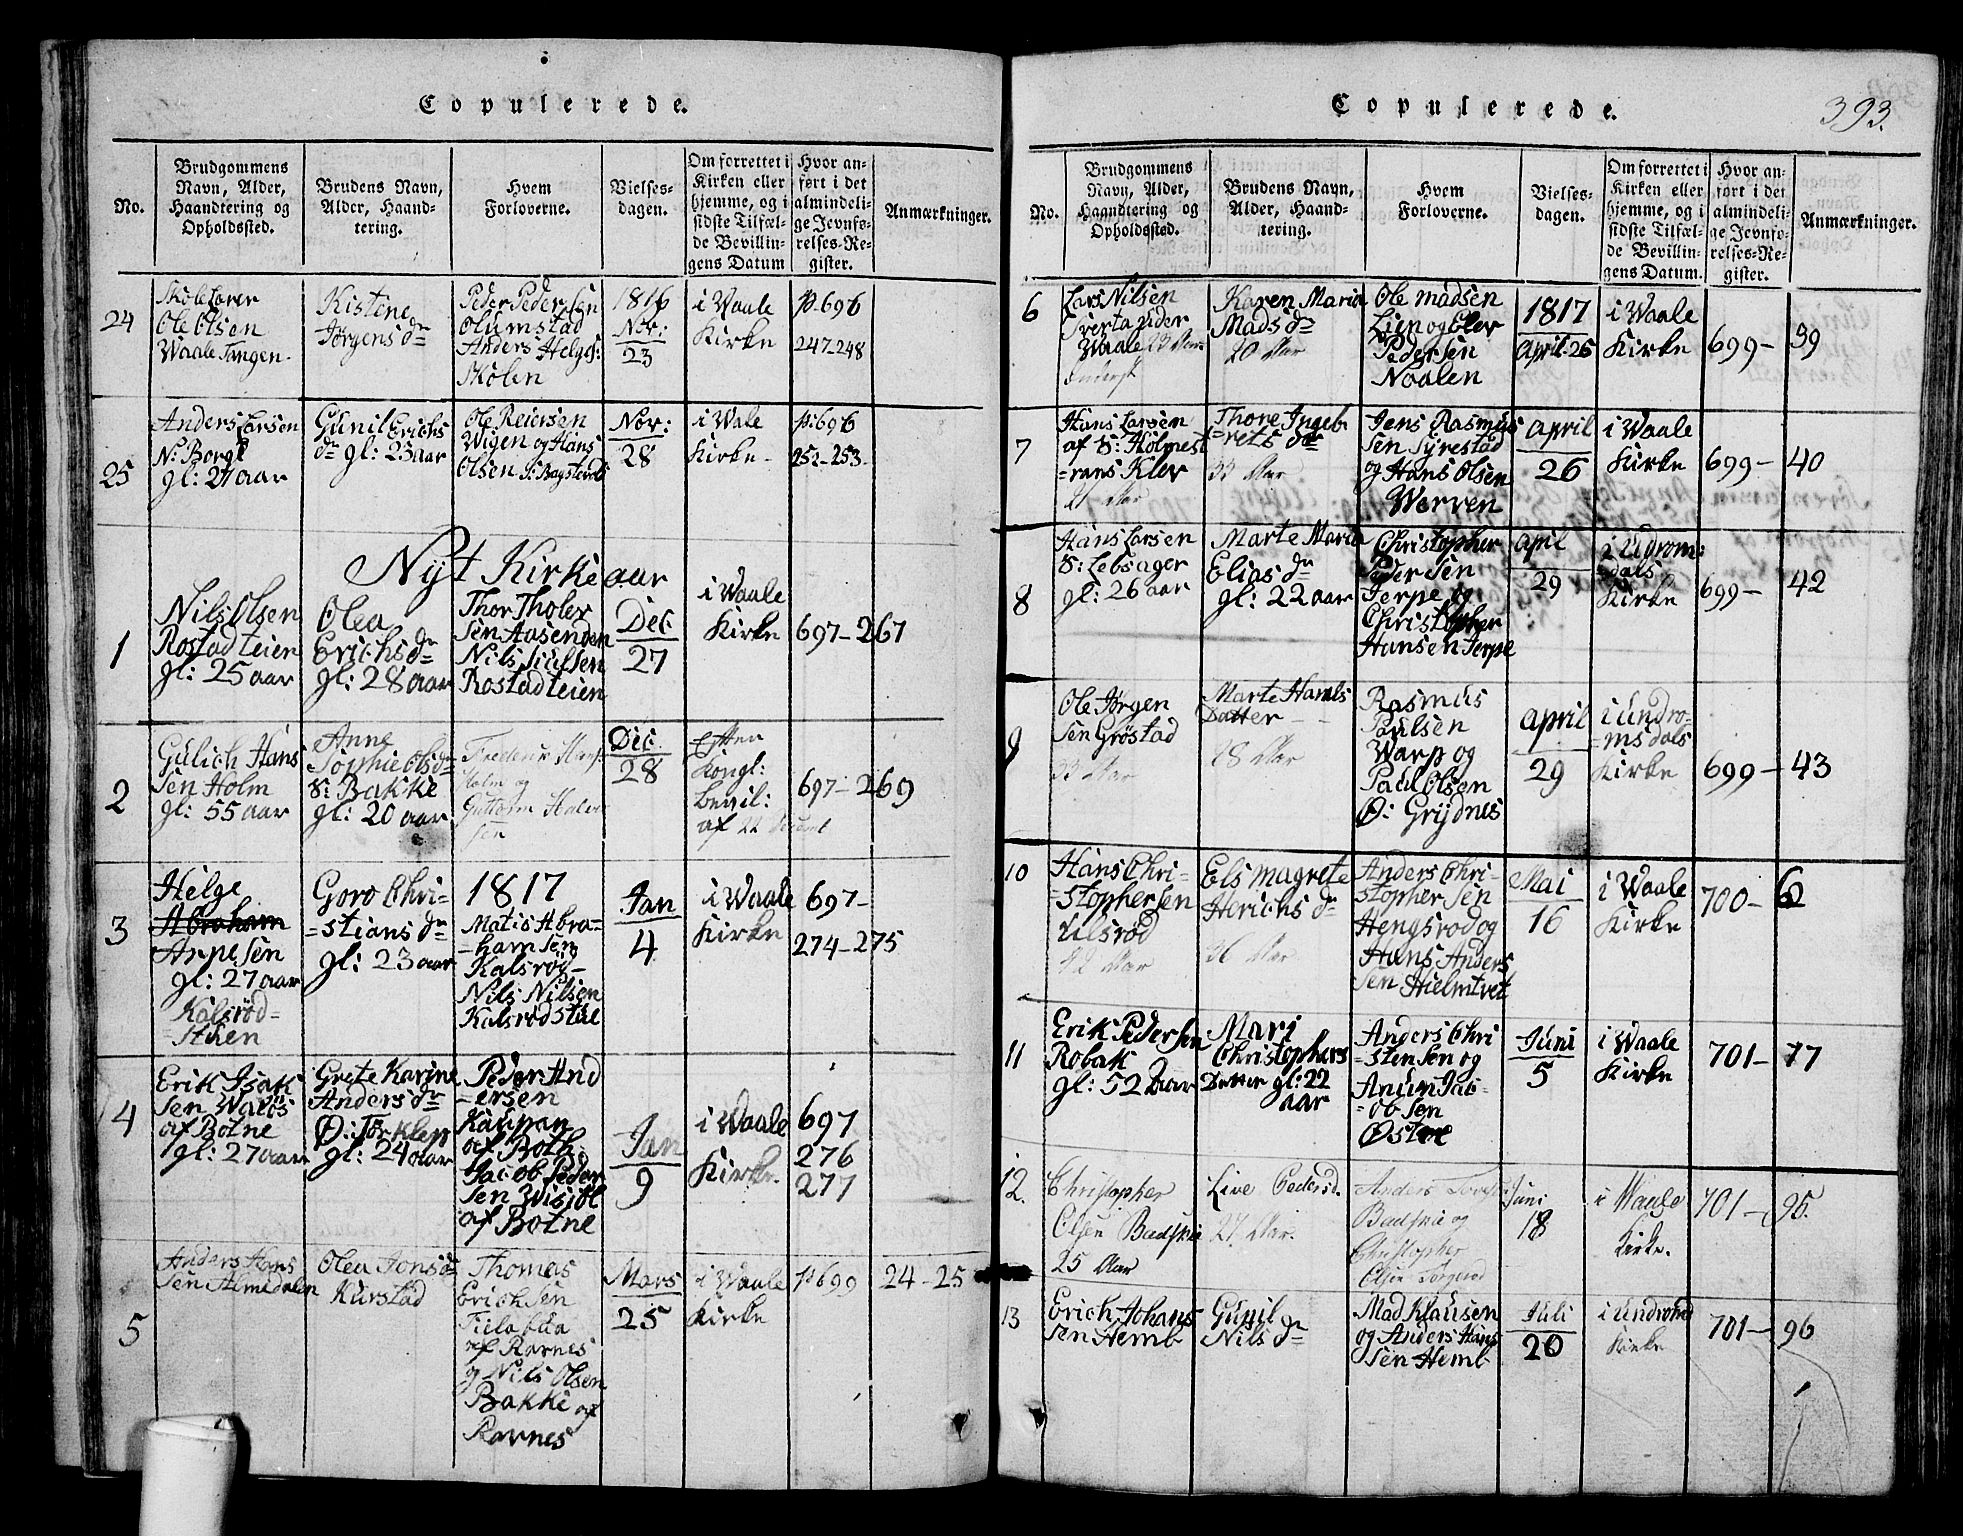 Copulerede.
No.
Brudgommens
Navn, Alder,
Haandtering og
Opholdssted.
Brudens Navn,
Alder, Haand-
tering.
Hvem
Forloverne.
Vielses-
dagen.
Om forrettet i
Kirken eller
hjemme, og i
sidste Tilfæl-
de Bevillin-
gens Datum
Hvor an-
ført i det
almindeli-
ge Jevnfø-
relses-Re-
gister.
Anmærkninger.
24
Ole Olsen
Waale Tangen.
Kistine
Jørgens dr
Peder Peder sen
Olumstad
Anders Helges:
Skolen
1816
Nov:
23
i Waale
Kirke
p. 696
247-248
25
Anders Larsen
N: Borge
gl: 27 aar
Gunil Erichs
dr gl: 23 aar
Ole Reiersen
Wigen og Hans
Olsen
Nov:
28
i Wale
Kirke
p: 696
252-253
Nyt Kirkeaar
1
Nils Olsen
Rostad teien
gl: 25 aar
Olea
Erichs dr
gl: 28 aar
Thor Tholer
sen Aasenden
Nils Juulsen
Rostad teien
Dec
27
i Waale
Kirke
697-267
2
Gulich Hans
sen Holm
gl: 55 aar
Anne
Sophie Ols dr
S: Bakke
gl: 20 aar
Holm og
Guttorm Halvor
sen
Dec
28
Efter
Kongl:
bevil:
af 22
697-269
3
Helge
Abraham
Arnesen
gl: 27 aar
Kalsrød=
=stuen
Goro Chri=
=stians dr
gl: 23 aar
1817
Matis Abra=
=ham sen
Kalsrød
Nils Nilsen
Kalsrød stue
Jan
4
i Waale
Kirke
697-
274-275
4
Erik Isak
sen Wales
af Botne
gl: 27 aar
Grete Karine
Anders dr
Ø: Torklep
gl: 24 aar
Peder And
=ersen
Kaupan
af Both:
Jacob Peder
sen
af Botne
Jan
9
i Waale
Kirke.
697
276
277
5
Anders Hans
sen Almedalen
Olea Jons dr
Kurstad
Thomas
Erichsen
af Ravnes
og Nils Olsen
Bakke af
Ravnes
Mars
25
i Waale
Kirke
p 699
24-25
Copulerede.
393.
No.
Brudgommens
Navn, Alder,
Haandtering og
Opholdssted.
Brudens Navn,
Alder, Haand-
tering.
Hvem
Forloverne.
Vielses-
dagen.
Om forrettet i
Kirken eller
hjemme, og i
sidste Tilfæl-
de Bevillin-
gens Datum.
Hvor an-
ført i det
almindeli-
ge Jevnfø-
relses-Re-
gister.
Anmærkninger.
6
Lars Nilsen
Waale 23 Aar
Karen Maria
Mads dr
20 Aar
Ole Madsen
Lien og Elev
Pedersen
Naalen
1817
April 26
i Waale
Kirke
699-
39
7
Hans Larsen
af S: Holmest
=rans Klev
27 Aar
Thore Ingeb
=rets dr
33 Aar
Jens Rasmus
sen Syrestad
og Hans Olsen
Werven
April
26
i Waale
Kirke
699-
40
8
Hans Larsen
S: Lebsager
gl: 26 aar
Marte Maria
Elias dr
gl: 22 aar
Christopher
Peder sen
Jerpe og
Christopher
Hansen Jerpe
April
29
i Udrom=
=dals
Kirke
699-
42
9
Ole Jørgen
sen Grøstad
33 Aar
Marte Harals
Datter
28 Aar
Rasmus
Paulsen
Warp og
Paul Olsen
Ø: Grydnes
April
29
i undro=
=msdals
Kirke
699-
43
10
Hans Chri=
=stophersen
Ulsrød
42 Aar
Els Magrete
Herichs dr
36 Aar
Anders Chri=
stopher sen
Hengsrod og
Hans Anders
sen Hielmtvet
Mai
16
i Waale
Kirke
700-
62
11
Erik Peder sen
Robak
gl: 52 aar
Mari
Christophers
Datter gl: 22
aar
Anders Chri=
=stensen og
Anun Jac=
=ob sen
Østre
Juni
5
i Waale
Kirke
701-
77
12.
Christopher
Olsen Badskie
25 Aar
Live Pedersd.
27 Aar.
Badskie og
Christopher
Olsen
Juni
18
i Waale
Kirke.
701-
95.
13
Erich Johans
sen Hemb
Gunil
Nils dr
Mad Klausen
og Anders Hans
sen Hemb
Juli
20
i undromd
Kirke
701-
96